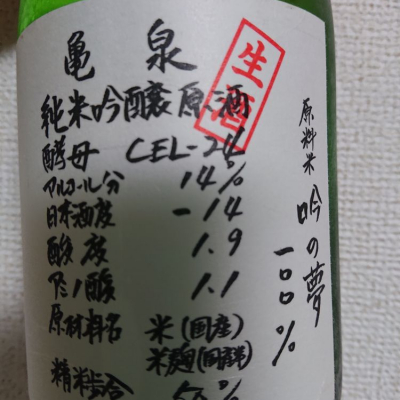 亀泉
純米吟醸原酒
生酒
酵母 CEL-24
アルコール分 14%
日本酒度 -14
酸度 1.9
アミノ酸 1.1
原材料名 米(国産)
米麹(国産米)
精米歩合 50%
原料米 吟の夢 一〇〇%